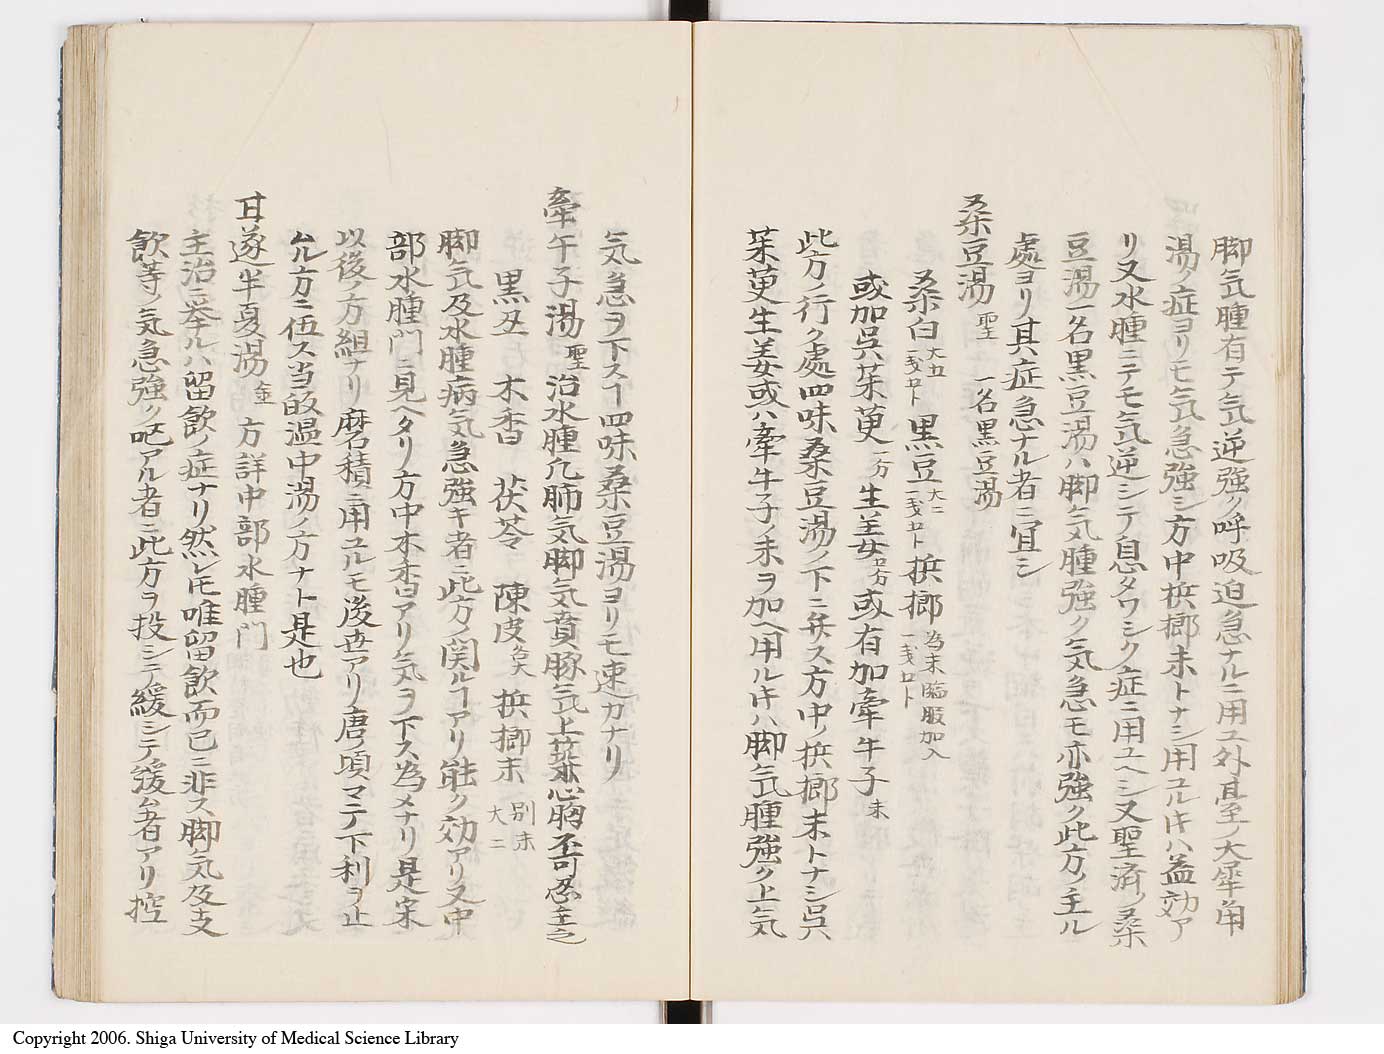 脚気腫有テ気逆強ク呼吸迫急ナルニ用ユ外臺ノ大犀角
湯ノ症ヨリモ気急強シ方中梹榔末トナシ用ユルキハ益効ア
リ又水腫ニテモ気逆シテ息タワシク症ニ用ユヘシ又聖済ノ桑
豆湯一名黒豆湯ハ脚気腫強ク気急モ亦強ク此方ノ主ル
處ヨリ其症急ナル者ニ宜シ
桑豆湯 聖 一名黒豆湯
桑白 大五 一戔 黒豆 大二 一戔 梹榔 為末臨服加入 一戔
或加呉茱萸 一分 生姜 或有加牽牛子 末
此方ノ行ク處四味桑豆湯ノ下ニ弁ス方中ノ梹榔末トナシ呉
茱萸生姜或ハ牽牛子ノ末ヲ加入用ルキハ脚気腫強ク上気
気急ヲ下スヿ四味桑豆湯ヨリモ速カナリ
牽牛子湯 聖 治水腫凡肺気脚気賁豚気上築心胸不可忍主之
黒丑 木香 茯苓 陳皮 梹榔末 別末 大三
脚気及水腫病気急強キ者ニ此方ノ関ルヿアリ能ク効アリ又中
部水腫門ニ見ヘタリ方中木香アリ気ヲ下ス為メナリ是宋
以後ノ方組ナリ磨積ニ用ユルモ後世アリ唐ノ頃マテ下利ヲ止
ムル方ニ伍ス当皈温中湯ノ方ナト是也
甘遂半夏湯 金 方詳中部水腫門
主治ニ挙ルハ留飲ノ症ナリ然レ𪜈唯留飲而已ニ非ス脚気及支
飲等ノ気急強ク咜アル者ニ此方ヲ投シテ緩シテ緩ム者アリ控